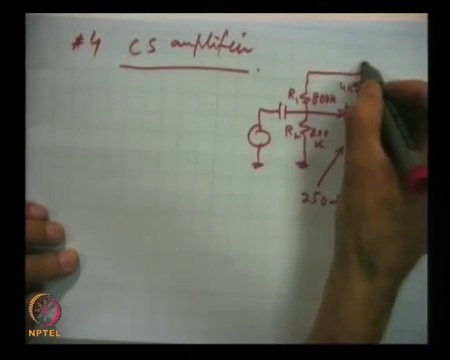 #4 CS amplifier
R1 800K
4K
R2 200
K
250
NPTEL